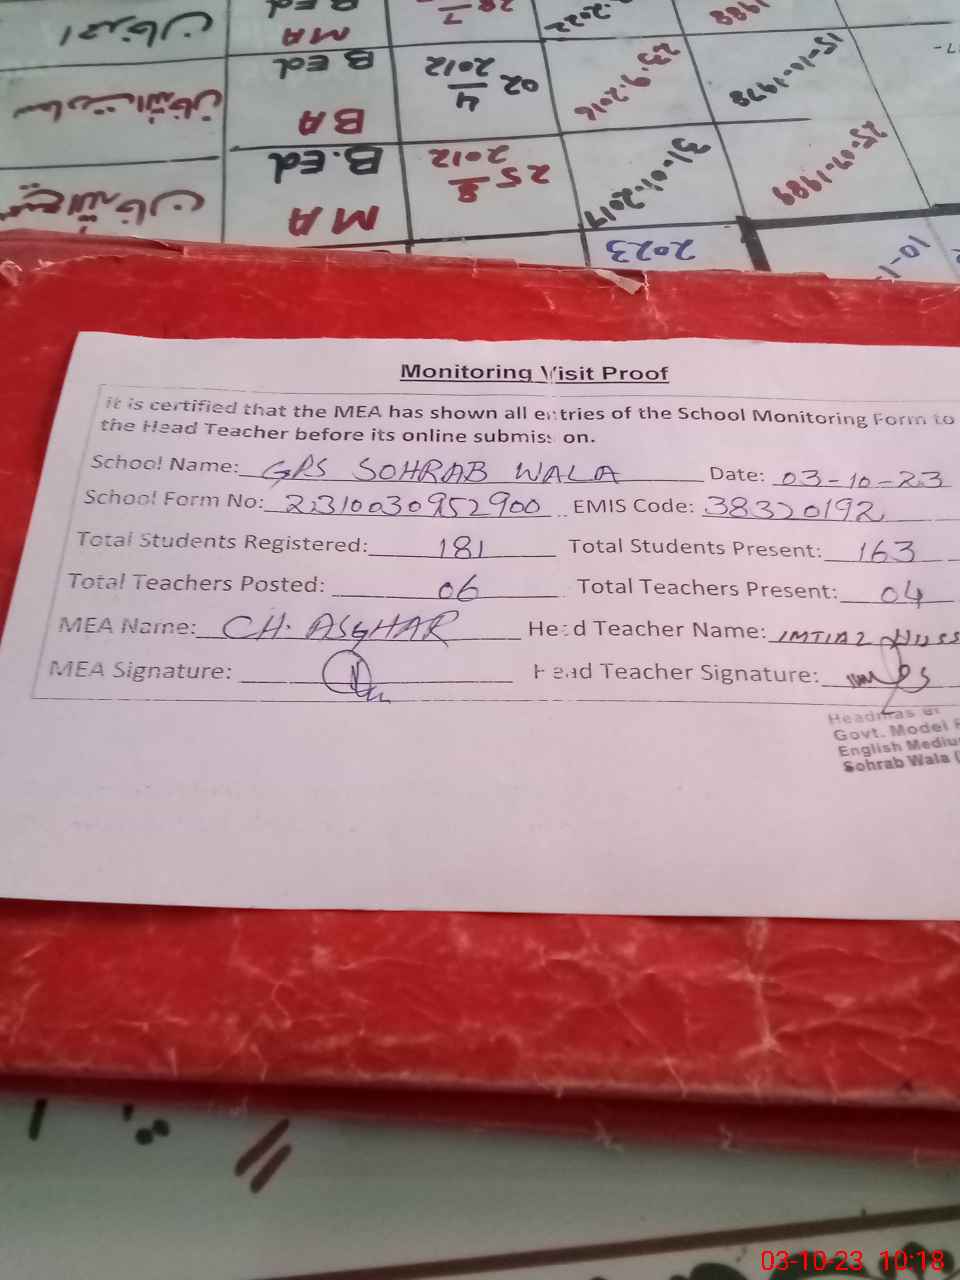 Monitoring Visit Proof
it is certified that the MEA has shown all entries of the School Monitoring Form to
the Head Teacher before its online submission.
School Name: GPS SOHRAB WALA Date: 03-10-23
School Form No: 2310030952900 EMIS Code: 38320192
Total Students Registered: 181 Total Students Present: 163
Total Teachers Posted: 06 Total Teachers Present: 04
MEA Name: CH. ASGHAR Head Teacher Name: IMTIAZ HUSS
MEA Signature: Head Teacher Signature:
Headmaster
Govt. Model P
English Mediu
Sohrab Wala (
2023
10-1
سمیع اللہ خان MA B.Ed 25/8 2012 31-01-2017 25-07-1989
BA B Ed 02/4 2012 23.9.2016 15-10-1978
MA B.Ed 28/7 2022 1988
03-10-23 10:18